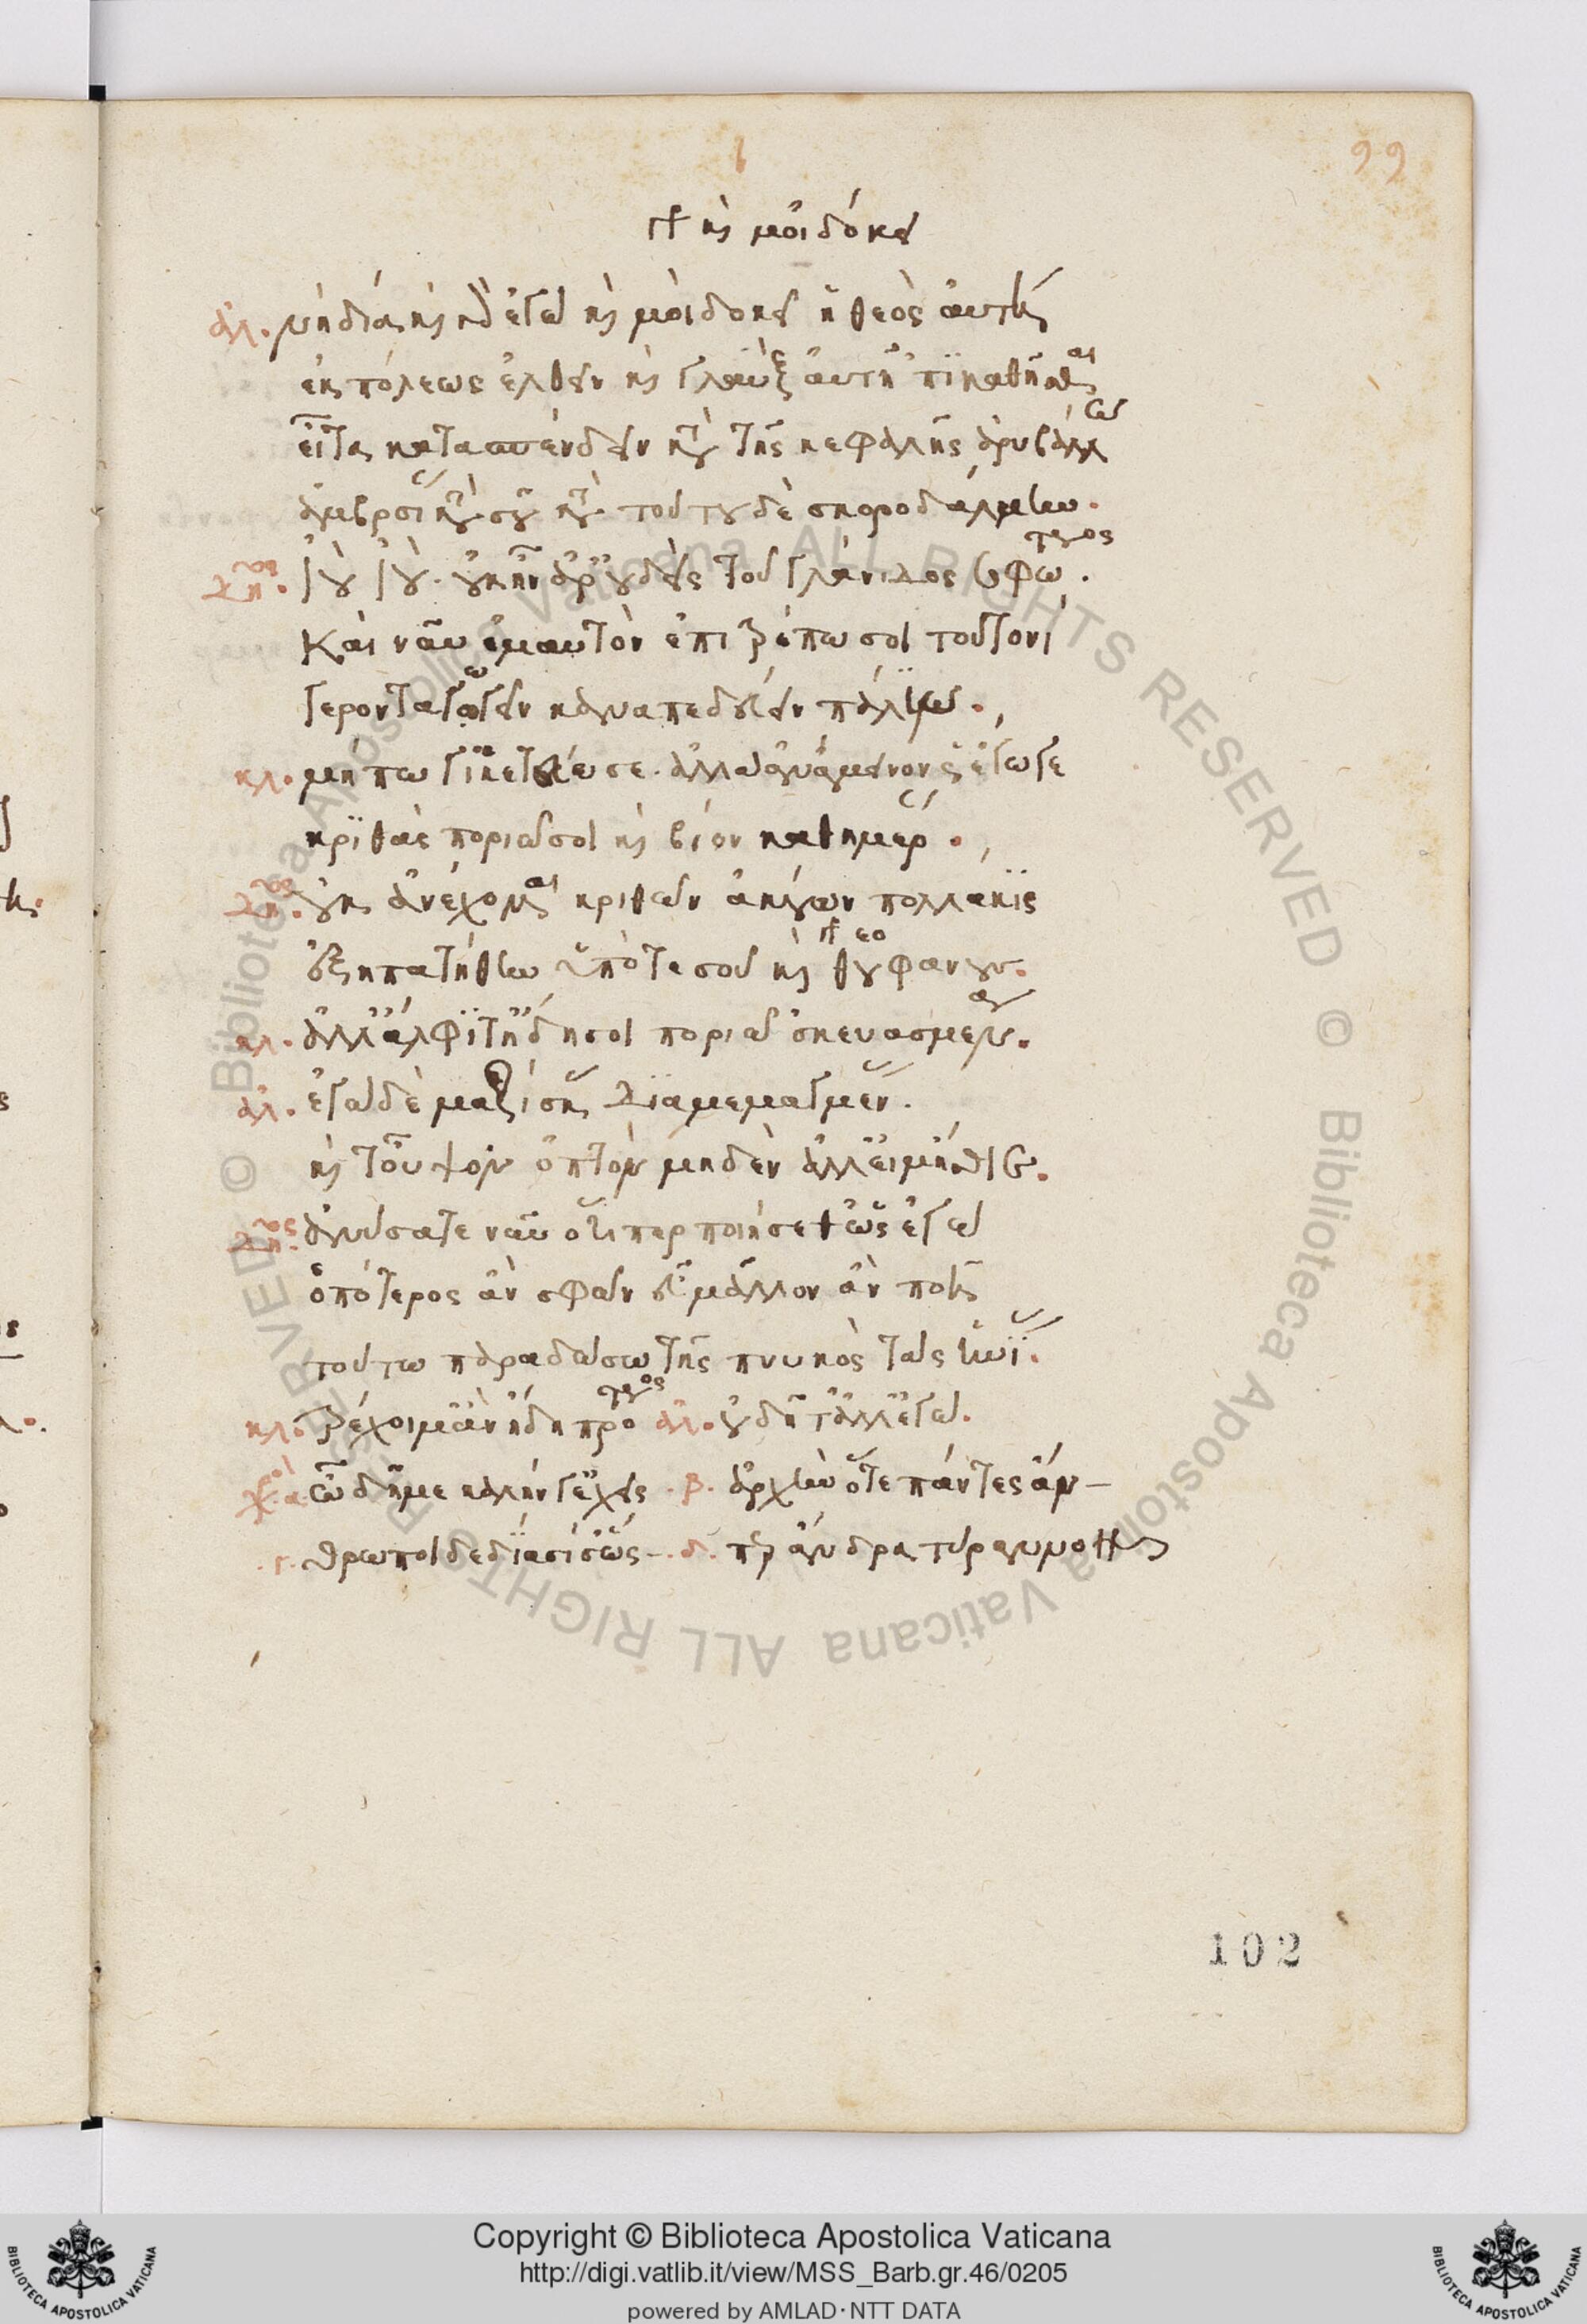 99
καὶ μοι δόκει
ἀλ. νὴ δία καὶ γὰρ ἐγὼ καὶ μοι δοκεῖ ἡ θεὸς αὐτὴ
ἐκ πόλεως ἐλθεῖν καὶ γλαὺξ αὐτῇ πικαθῆσθαι
εἶτα κατασπένδειν κατὰ τῆς κεφαλῆς ἀρυβάλλῳ
ἀμβροσίαν κατὰ σοῦ κατὰ τούτου δὲ σκοροδάλμην.
δῆμος. ἰοὺ ἰοὺ. οὐκ ἦν ἄρ' οὐδεὶς τοῦ γλάνιδος σοφώτερος.
Καὶ νῦν ἐμαυτὸν ἐπιτρέπω σοι τουτονὶ
γερονταγωγεῖν κἀναπαιδεύειν πάλιν.
κλ. μήπω γ' ἱκετεύω σε. ἀλλ' ἀνάμεινον ὡς ἐγώ σε
κριθὰς ποριῶ σοι καὶ βίον καθημέραν.
δῆμος. οὐκ ἀνέχομαι κριθῶν ἀκούων πολλακις
ἐξηπατήθην ὑπό τε σοῦ καὶ θουφάνους.
κλ. ἀλλ' ἄλφιτ' ἤδη σοι ποριῶ σκευασμένα.
ἀλ. ἐγὼ δὲ μαζίσκας διαμεμαγμένας.
καὶ τοὖψον ὀπτὸν μηδὲν ἀλλ' εἰ μὴ ἔσθιε.
δῆμος ἀνύσατε νῦν ὅτι περ ποιήσεθ' ὡς ἐγὼ
ὁπότερος ἂν σφῶν εὖ με μᾶλλον ἂν ποιῇ
τούτῳ παραδώσω τῆς πνυκὸς τὰς ἡνίας.
κλ. τρέχοιμ' ἂν ἤδη πρότερος ἀλ. οὐ δῆτ' ἀλλ' ἐγώ.
χο. α. ὦ δῆμε καλήν γ' ἔχεις .β. ἀρχὴν ὅτε πάντες ἄν-
.γ. θρωποι δεδίασί σ' ὥς-. δ. περ ἄνδρα τύραννον
102
Copyright © Biblioteca Apostolica Vaticana
http://digi.vatlib.it/view/MSS_Barb.gr.46/0205
powered by AMLAD·NTT DATA
© Biblioteca Apostolica Vaticana ALL RIGHTS RESERVED © Biblioteca Apostolica Vaticana ALL RIGHTS RESERVED
BIBLIOTECA APOSTOLICA VATICANA
BIBLIOTECA APOSTOLICA VATICANA